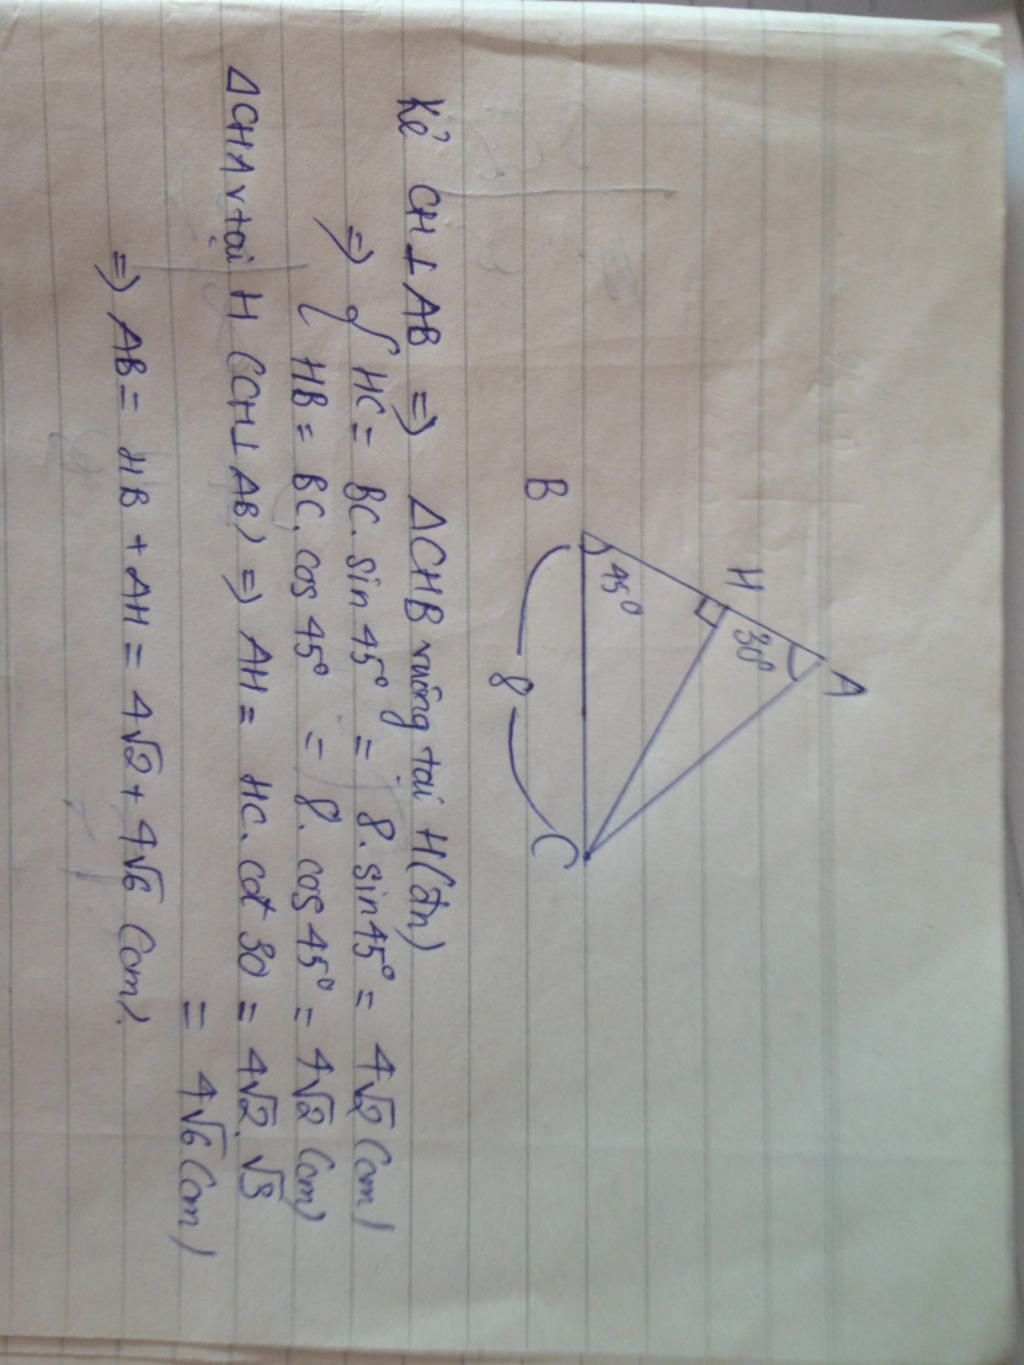 A
H
30°
45°
B
C
8
Kẻ CH ⊥ AB => ΔCHB vuông tại H (đn)
=> { HC = BC. sin 45° = 8. sin 45° = 4√2 (cm)
HB = BC. cos 45° = 8. cos 45° = 4√2 (cm)
ΔCHA v tại H (CH ⊥ AB) => AH = HC. cot 30 = 4√2. √3
= 4√6 (cm)
=> AB = HB + AH = 4√2 + 4√6 (cm).